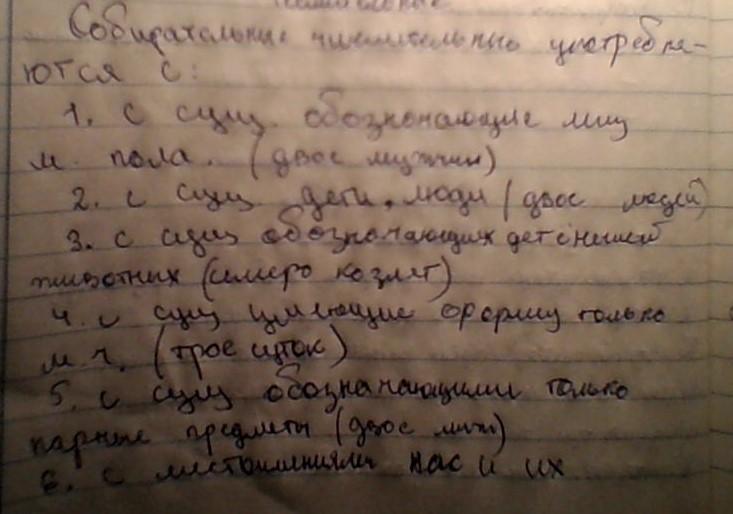 Собирательные числительные употребля-
ются с:
1. с сущ. обозночающие лиц
м. пола. (двое мужчин)
2. с сущ дети, люди (двое людей)
3. с сущ обозночающих детёнышей
животных (семеро козлят)
4. с сущ имеющие форму только
м.ч. (трое суток)
5. с сущ обозначающими только
парные предметы (двое)
6. с местоимениями нас и их